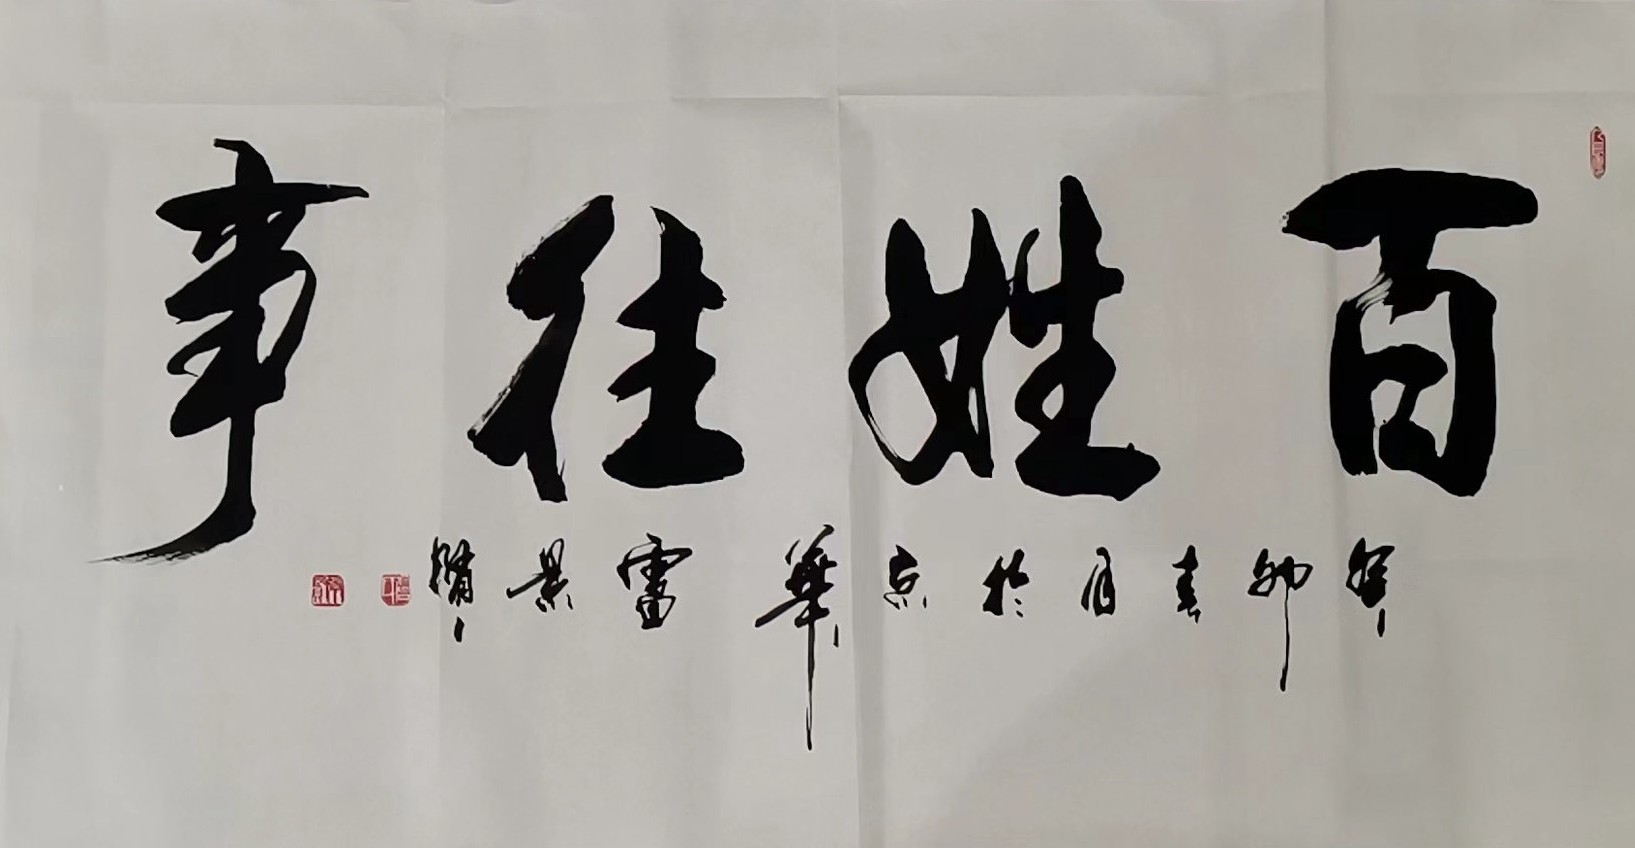 百姓往事
癸卯春月於京華雷景